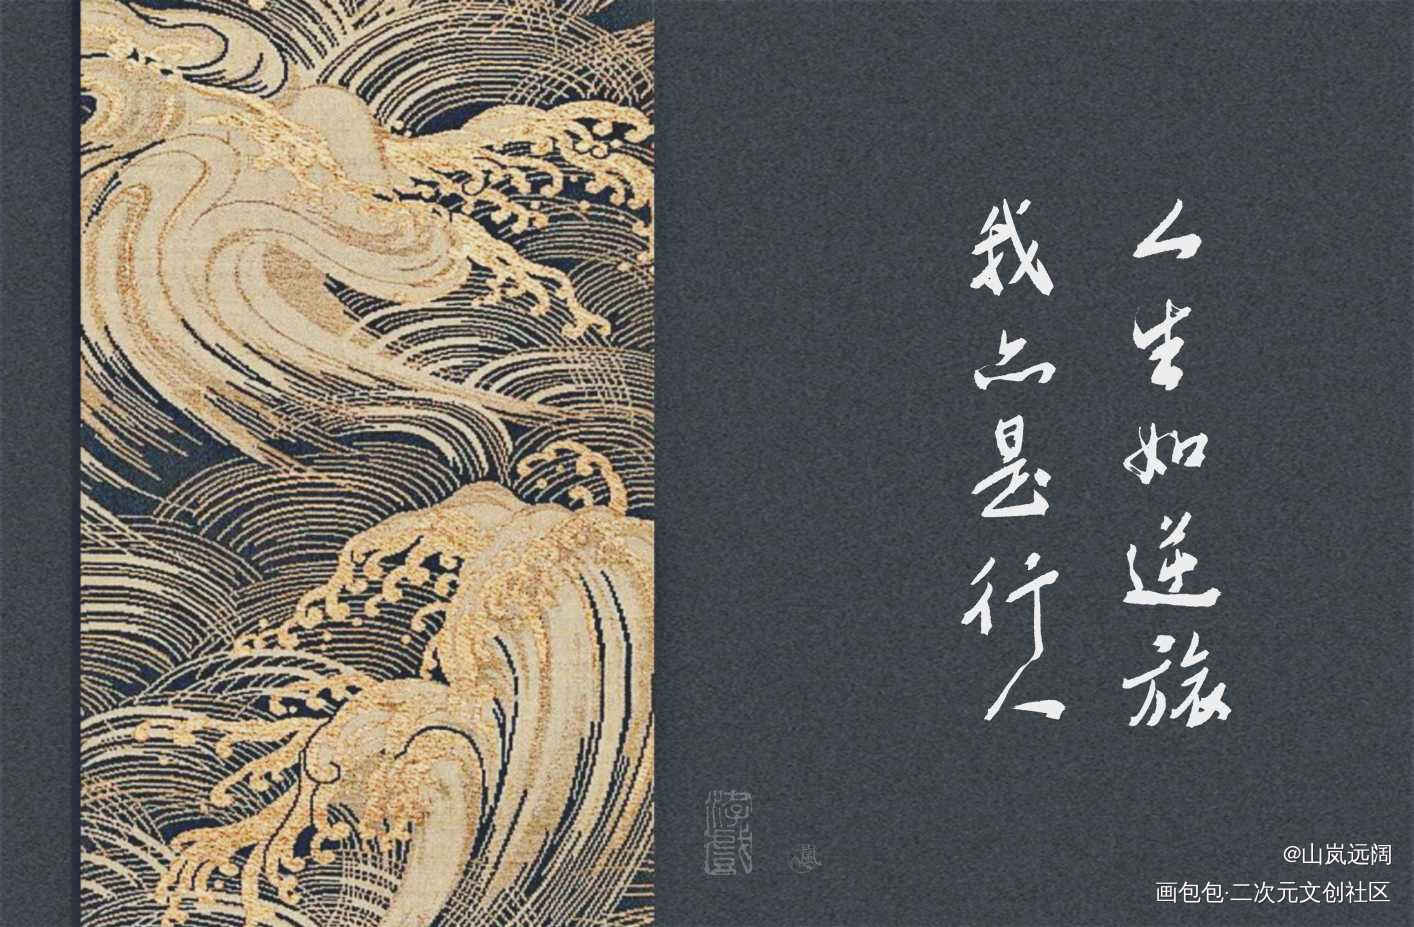 人生如逆旅
我亦是行人
@山岚远阔
画包包·二次元文创社区